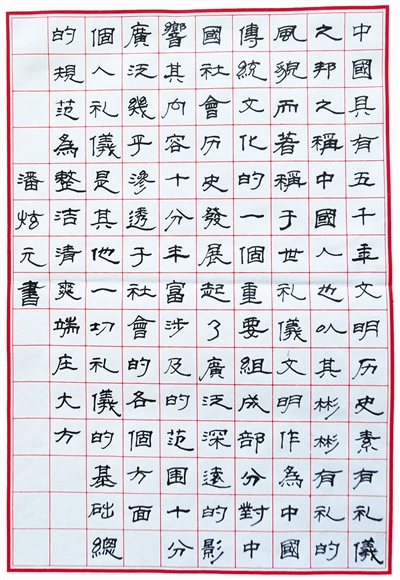 中國具有五千年文明历史素有礼儀
之邦之稱中國人也以其彬彬有礼的
風貌而著稱于世礼儀文明作為中國
傳統文化的一個重要組成部分對中
國社會历史發展起了廣泛深遠的影
響其内容十分丰富涉及的范围十分
廣泛幾乎滲透于社會的各個方面
個人礼儀是其他一切礼儀的基础總
的規范為整洁清爽端庄大方
潘炫元書